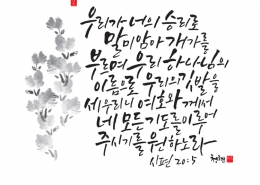 우리가 너의 승리로
말미암아 개가를
부르며 우리 하나님의
이름으로 우리의 깃발을
세우리니 여호와께서
네 모든 기도를 이루어
주시기를 원하노라
시편 20:5